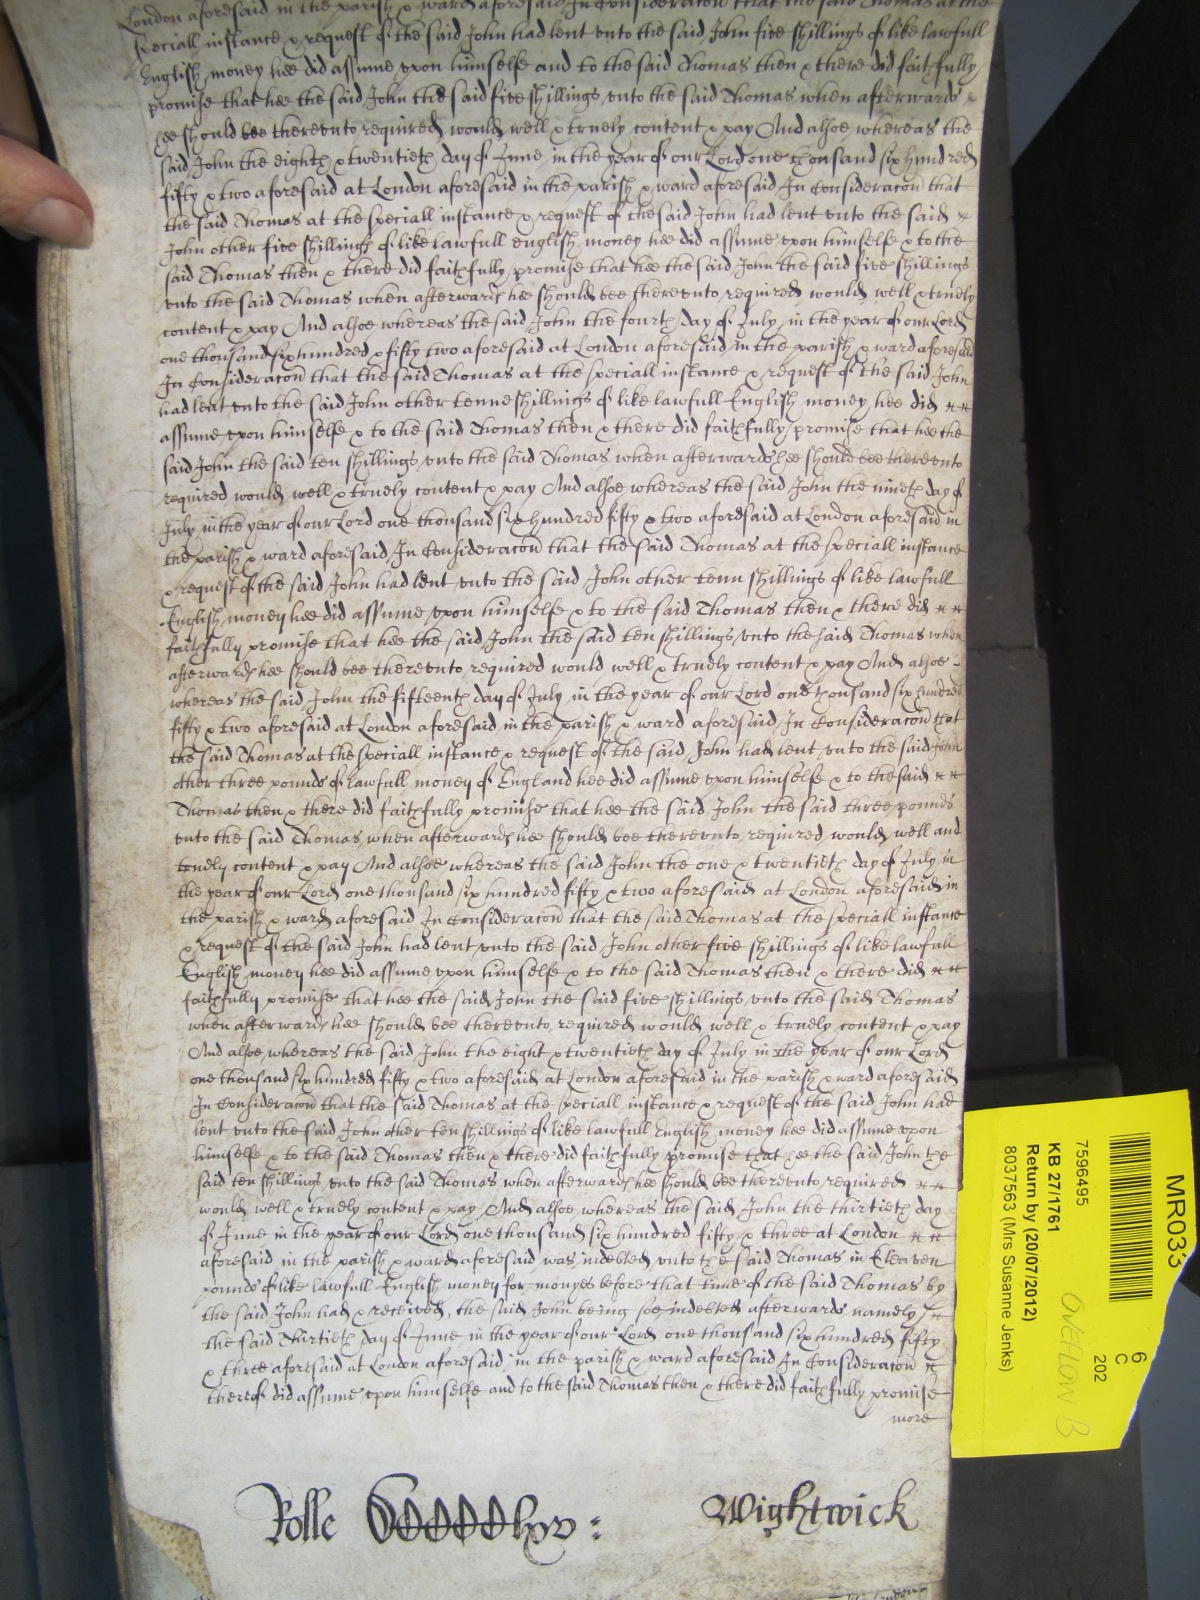 London aforesaid in the parish & ward aforesaid In Consideracon that the said Thomas at the
speciall instance & request of the said John had lent vnto the said John five shillings of like lawfull
English money hee did assume vpon himselfe and to the said Thomas then & there did faithfully
promise that hee the said John the said five shillings vnto the said Thomas when afterwards
hee should bee therevnto required would well & truely content & pay And alsoe whereas the
said John the eighth & twentieth day of June in the year of our Lord one thousand six hundred
fifty & two aforesaid at London aforesaid in the parish & ward aforesaid In Consideracon that
the said Thomas at the speciall instance & request of the said John had lent vnto the said
John other five shillings of like lawfull english money hee did assume vpon himselfe & to the
said Thomas then & there did faithfully promise that hee the said John the said five shillings
vnto the said Thomas when afterwards hee should bee therevnto required would well & truely
content & pay And alsoe whereas the said John the fourth day of July in the year of our Lord
one thousand six hundred & fifty two aforesaid at London aforesaid in the parish & ward aforesaid
In Consideracon that the said Thomas at the speciall instance & request of the said John
had lent vnto the said John other tenne shillings of like lawfull English money hee did
assume vpon himselfe & to the said Thomas then & there did faithfully promise that hee the
said John the said ten shillings vnto the said Thomas when afterwards hee should bee therevnto
required would well & truely content & pay And alsoe whereas the said John the nineth day of
July in the year of our Lord one thousand six hundred fifty & two aforesaid at London aforesaid in
the parish & ward aforesaid In Consideracon that the said Thomas at the speciall instance
& request of the said John had lent vnto the said John other tenn shillings of like lawfull
English money hee did assume vpon himselfe & to the said Thomas then & there did
faithfully promise that hee the said John the said ten shillings vnto the said Thomas when
afterwards hee should bee therevnto required would well & truely content & pay And alsoe
whereas the said John the fifteenth day of July in the year of our Lord one thousand six hundred
fifty & two aforesaid at London aforesaid in the parish & ward aforesaid In Consideracon that
the said Thomas at the speciall instance & request of the said John had lent vnto the said John
other three pounds of lawfull money of England hee did assume vpon himselfe & to the said
Thomas then & there did faithfully promise that hee the said John the said three pounds
vnto the said Thomas when afterwards hee should bee therevnto required would well and
truely content & pay And alsoe whereas the said John the one & twentieth day of July in
the year of our Lord one thousand six hundred fifty & two aforesaid at London aforesaid in
the parish & ward aforesaid In Consideracon that the said Thomas at the speciall instance
& request of the said John had lent vnto the said John other five shillings of like lawfull
English money hee did assume vpon himselfe & to the said Thomas then & there did
faithfully promise that hee the said John the said five shillings vnto the said Thomas
when afterwards hee should bee therevnto required would well & truely content & pay
And alsoe whereas the said John the eight & twentieth day of July in the year of our Lord
one thousand six hundred fifty & two aforesaid at London aforesaid in the parish & ward aforesaid
In Consideracon that the said Thomas at the speciall instance & request of the said John had
lent vnto the said John other ten shillings of like lawfull English money hee did assume vpon
himselfe & to the said Thomas then & there did faithfully promise that hee the said John the
said ten shillings vnto the said Thomas when afterwards hee should bee therevnto required
would well & truely content & pay And alsoe whereas the said John the thirtieth day
of June in the year of our Lord one thousand six hundred fifty & three at London
aforesaid in the parish & ward aforesaid was indebted vnto the said Thomas in Eleaven
pounds of like lawfull English money for monyes before that time of the said Thomas by
the said John had & received, the said John being soe indebted afterwards namely
the said Thirtieth day of June in the year of our Lord one thousand six hundred fifty
& three aforesaid at London aforesaid in the parish & ward aforesaid In Consideracon
thereof did assume vpon himselfe and to the said Thomas then & there did faithfully promise
more
Rolle lxv:
Wightwick
MR033
7596495
KB 27/1761
Return by (20/07/2012)
8037563 (Mrs Susanne Jenks)
6
C
202
Overflow B